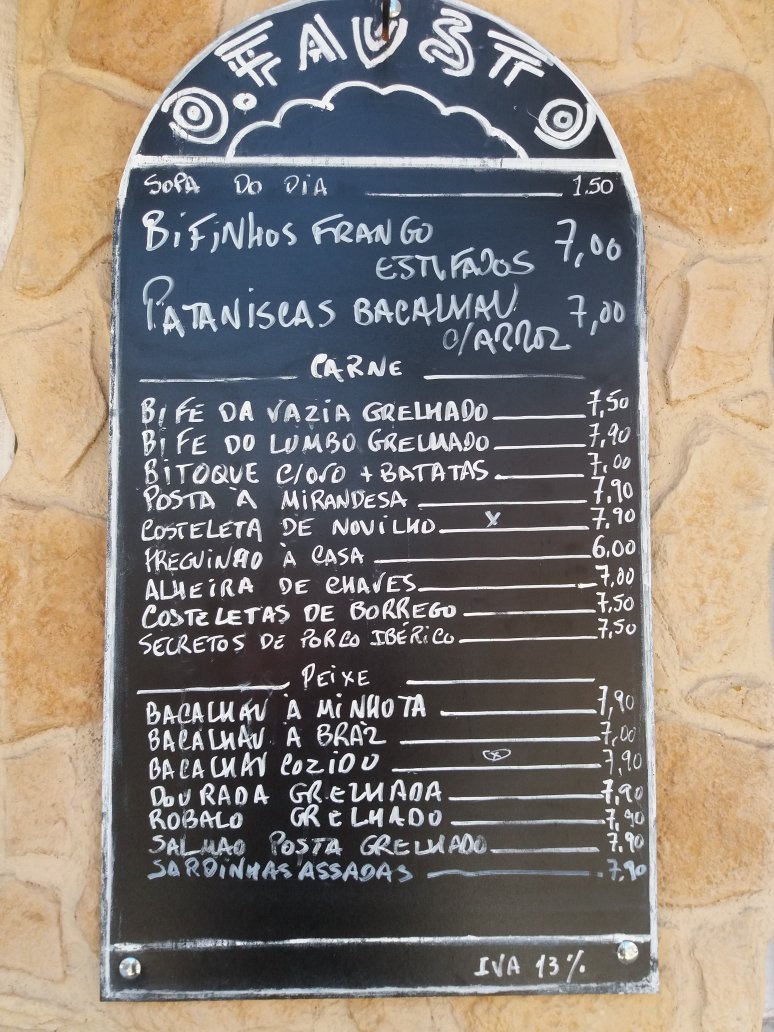 O.FAUSTO
SOPA DO DIA 1.50
BIFINHOS FRANGO 7,00
ESTUFADOS
PATANISCAS BACALHAU 7,00
C/ARROZ
CARNE
BIFE DA VAZIA GRELHADO 7,50
BIFE DO LUMBO GRELHADO 7,90
BITOQUE C/OVO + BATATAS 7,00
POSTA À MIRANDESA 7,90
COSTELETA DE NOVILHO x 7,90
PREGUINHO À CASA 6,00
ALHEIRA DE CHAVES 7,00
COSTELETAS DE BORREGO 7,50
SECRETOS DE PORCO IBÉRICO 7,50
PEIXE
BACALHAU À MINHOTA 7,90
BACALHAU À BRAZ 7,00
BACALHAU COZIDO x 7,90
DOURADA GRELHADA 7,90
ROBALO GRELHADO 7,90
SALMAO POSTA GRELHADO 7,90
SARDINHAS ASSADAS 7,90
IVA 13%